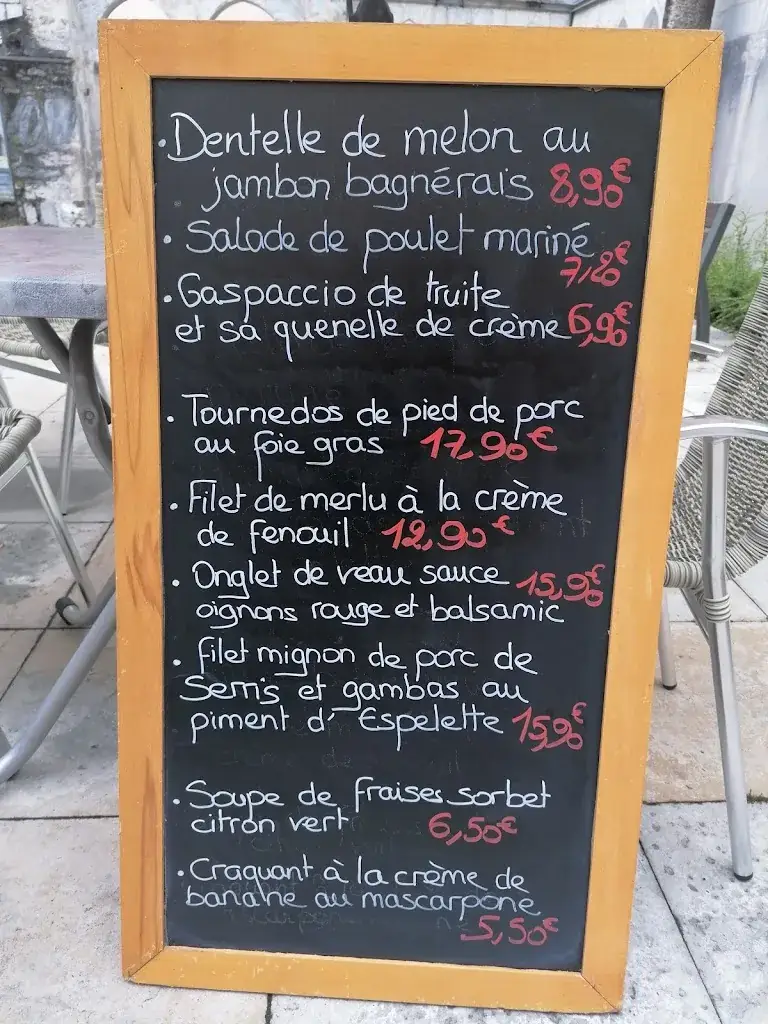 • Dentelle de melon au
jambon bagnérais 8,90€
• Salade de poulet mariné
7,20€
• Gaspaccio de truite
et sa quenelle de crème 6,90€
• Tournedos de pied de porc
au foie gras 17.90€
• Filet de merlu à la crème
de fenouil 12,90€
• Onglet de veau sauce 15,90€
oignons rouge et balsamic
• filet mignon de porc de
Serris et gambas au
piment d'Espelette 15,90€
• Soupe de fraises sorbet
citron vert 6,50€
• Craquant à la crème de
banane au mascarpone
5,50€